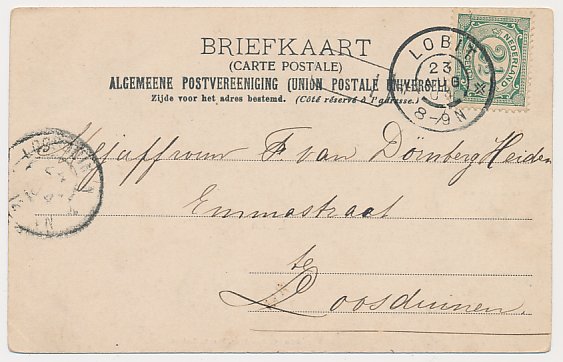 BRIEFKAART
(CARTE POSTALE)
ALGEMEENE POSTVEREENIGING (UNION POSTALE UNIVERSELLE)
Zijde voor het adres bestemd. (Côté réservé à l'adresse.)
LOBITH
23
8-9N
NEDERLAND
2½
Mejaffrouw F. van Dörnberg Heiden
Emmastraat
te
Loosduinen.